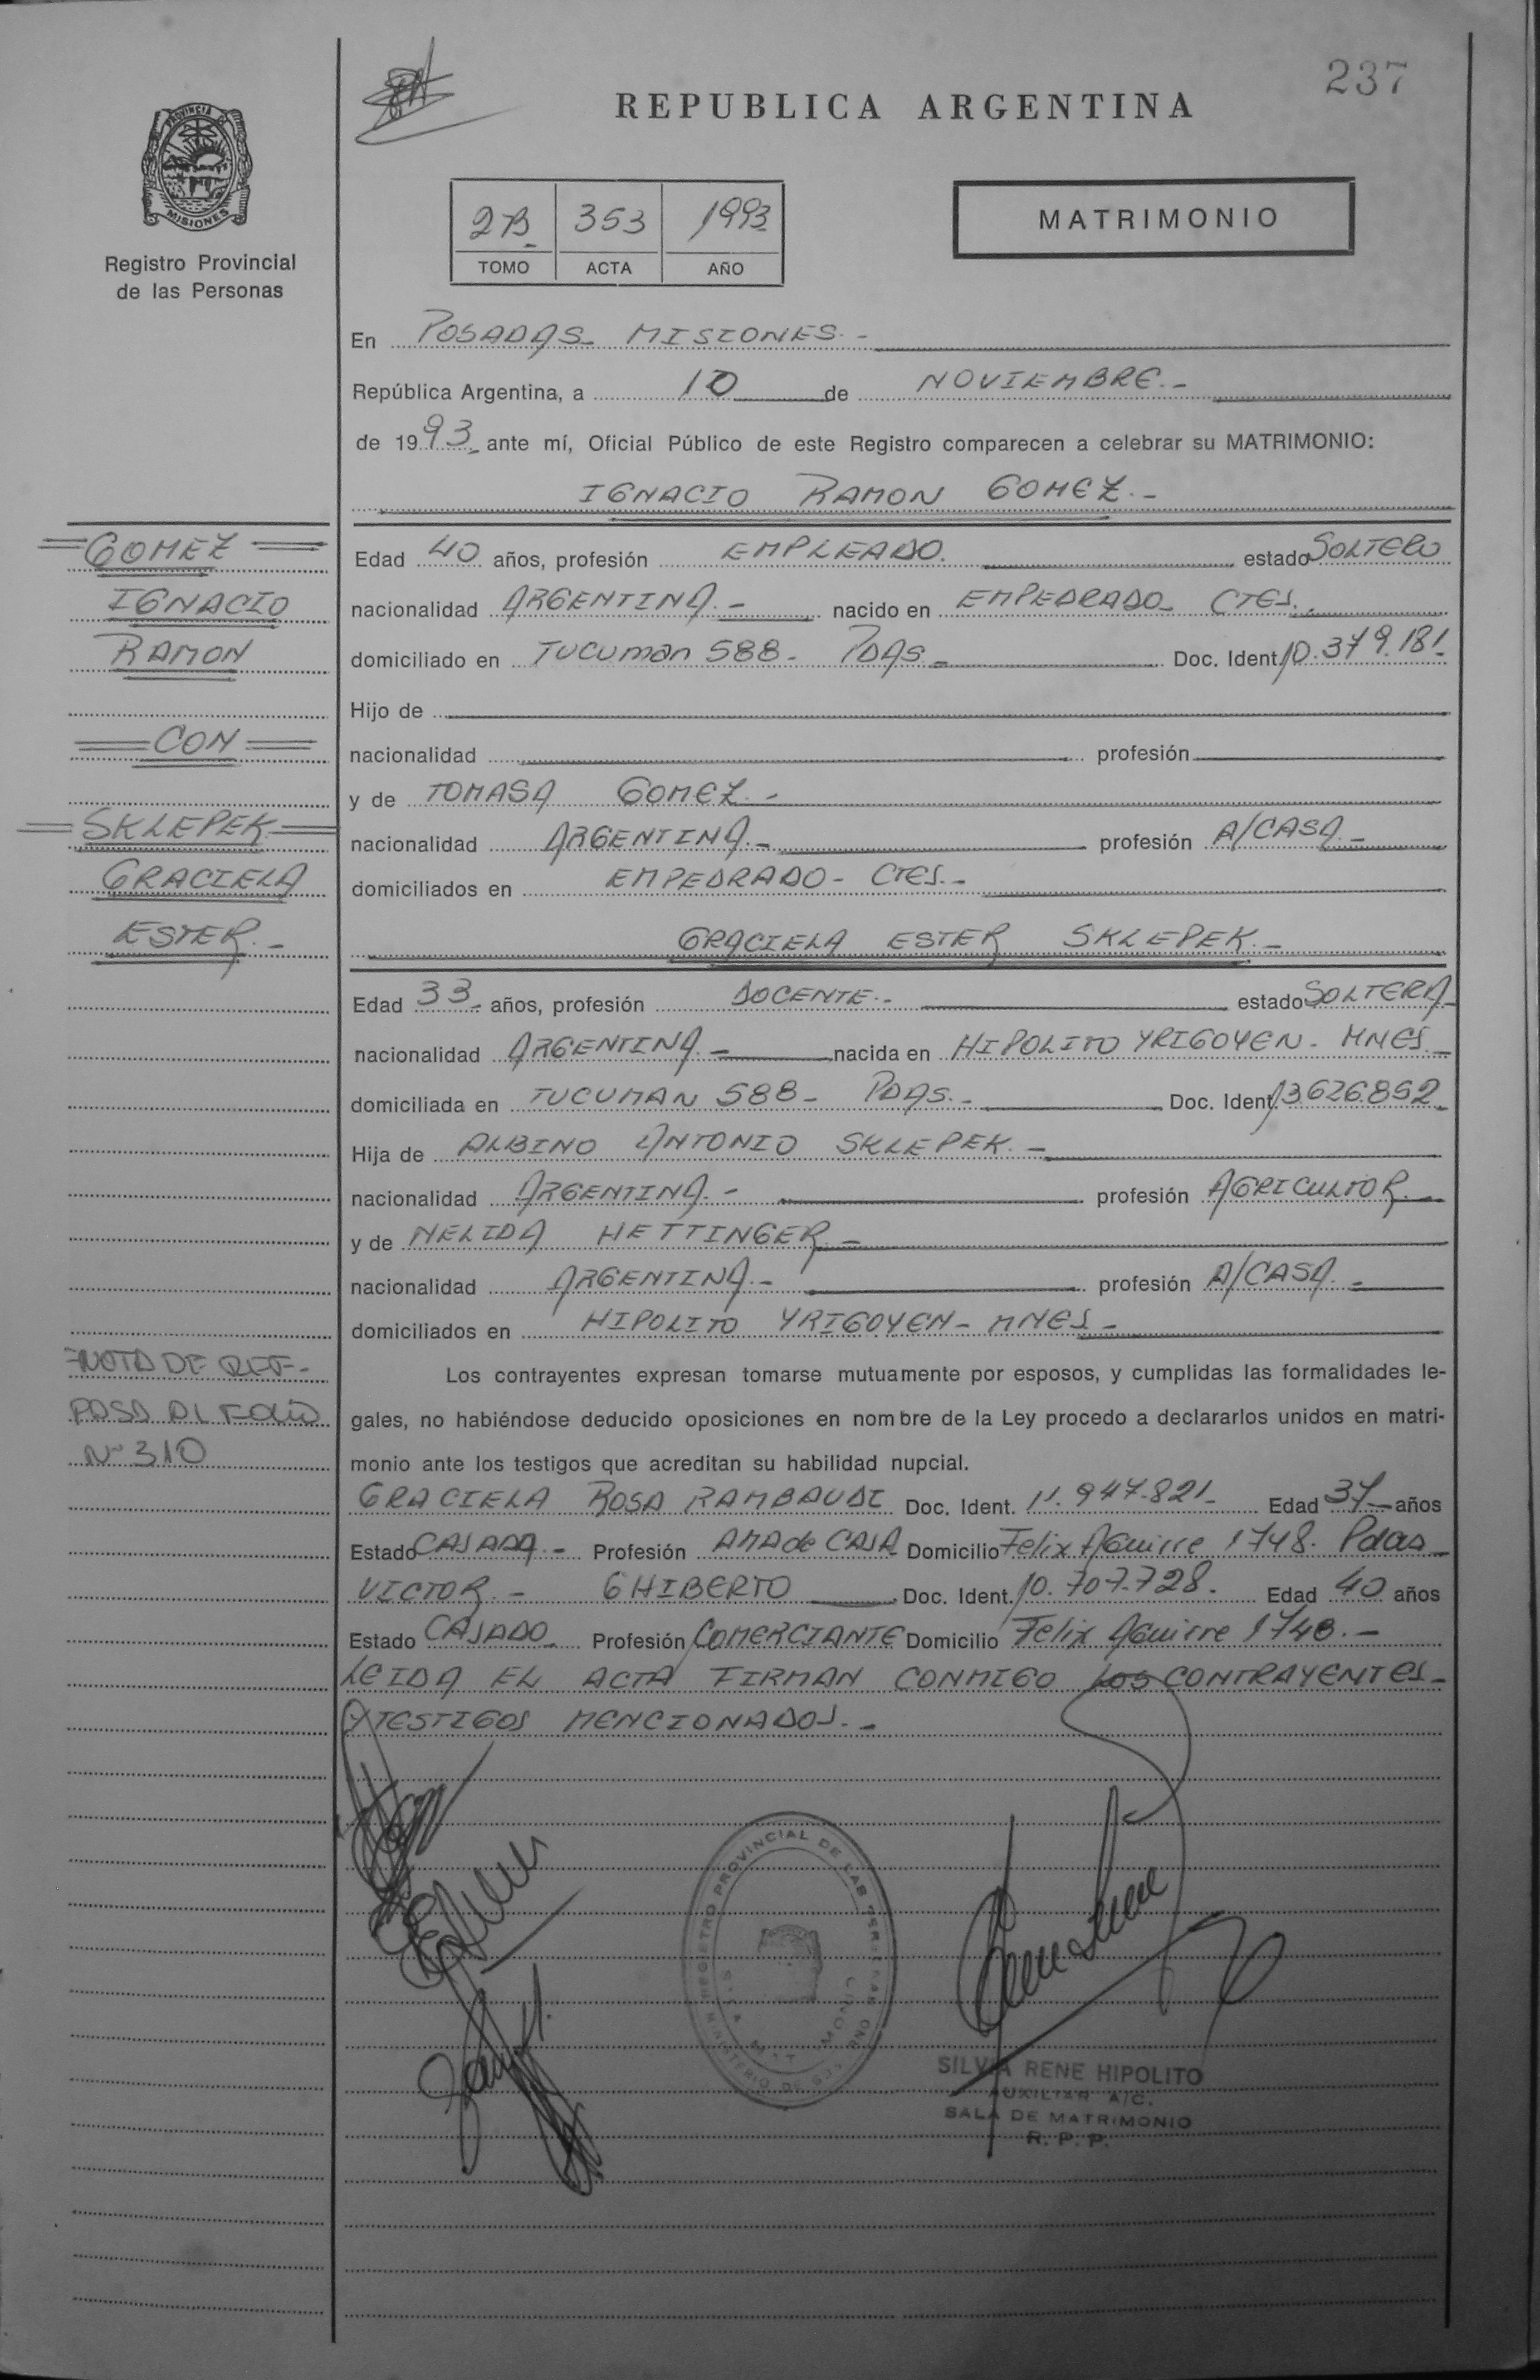 237
REPUBLICA ARGENTINA
PROVINCIA D
MISIONES
Registro Provincial
de las Personas
2B 353 1993
TOMO ACTA AÑO
MATRIMONIO
En POSADAS - MISIONES.-
República Argentina, a 10 de NOVIEMBRE.-
de 1993 ante mí, Oficial Público de este Registro comparecen a celebrar su MATRIMONIO:
IGNACIO RAMON GOMEZ.-
GOMEZ
IGNACIO
RAMON
CON
SKLEPEK
GRACIELA
ESTER.-
Edad 40 años, profesión EMPLEADO. estado SOLTERO
nacionalidad ARGENTINA.- nacido en EMPEDRADO - CTES.
domiciliado en Tucuman 588 - PDAS - Doc. Ident. 10.379.181.
Hijo de
nacionalidad profesión
y de TOMASA GOMEZ.-
nacionalidad ARGENTINA.- profesión A/CASA.-
domiciliados en EMPEDRADO - CTES.-
GRACIELA ESTER SKLEPEK.-
Edad 33 años, profesión DOCENTE.- estado SOLTERA
nacionalidad ARGENTINA.- nacida en HIPOLITO YRIGOYEN - MNES.
domiciliada en TUCUMAN 588 - PDAS.- Doc. Ident. 13.626.852
Hija de ALBINO ANTONIO SKLEPEK.-
nacionalidad ARGENTINA.- profesión AGRICULTOR.
y de NELIDA HETTINGER.-
nacionalidad ARGENTINA.- profesión A/CASA.-
domiciliados en HIPOLITO YRIGOYEN - MNES -
=NOTA DE REF-
PASA AL FOLIO
Nº 310
Los contrayentes expresan tomarse mutuamente por esposos, y cumplidas las formalidades le-
gales, no habiéndose deducido oposiciones en nombre de la Ley procedo a declararlos unidos en matri-
monio ante los testigos que acreditan su habilidad nupcial.
GRACIELA ROSA RAMBAUDI Doc. Ident. 11.947.821- Edad 37 años
Estado CASADA.- Profesión AMA de CASA Domicilio Felix Aguirre 1748. Pdas
VICTOR.- GHIBERTO Doc. Ident. 10.707.728. Edad 40 años
Estado CASADO Profesión COMERCIANTE Domicilio Felix Aguirre 1748.-
LEIDA EL ACTA FIRMAN CONMIGO LOS CONTRAYENTES
Y TESTIGOS MENCIONADOS.-
REGISTRO PROVINCIAL DE LAS PERSONAS
SILVIA RENE HIPOLITO
AUXILIAR A/C.
SALA DE MATRIMONIO
R. P. P.